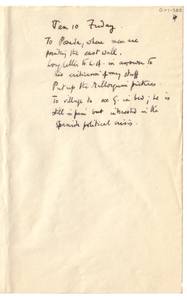 Jan 10 Friday.
To Parida, where men are
pointing the east wall.
Long letter to L.G. in answer to
his criticism of my stuff
Put up the Mallorquin pictures.
To village to see G. in bed; he is
still in pain but interested in the
Spanish political crisis.